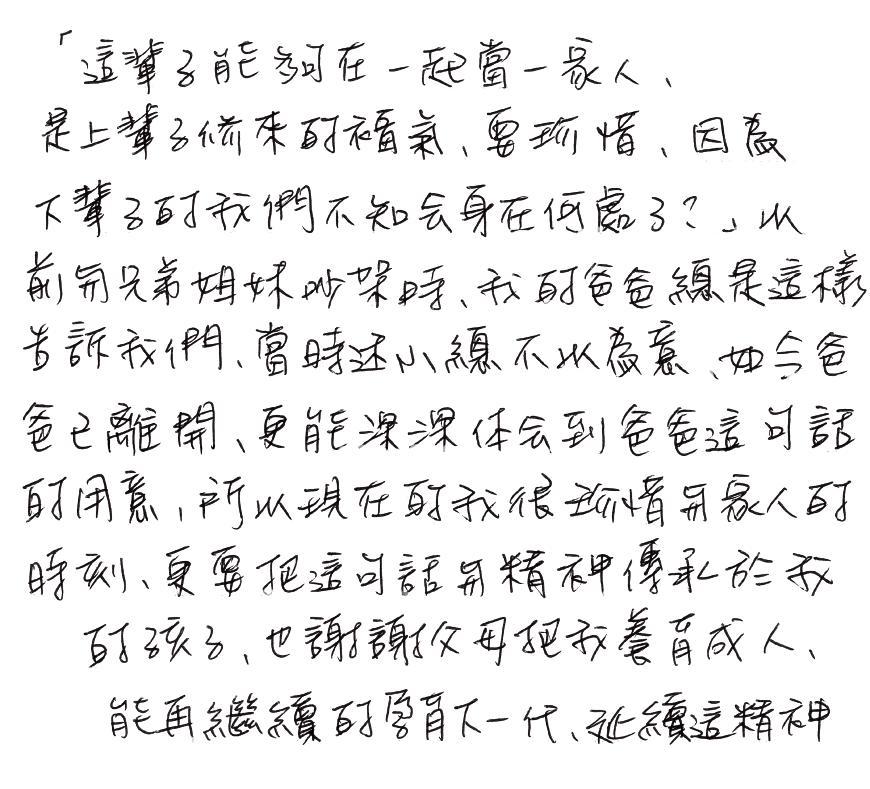 「這輩子能夠在一起當一家人、
是上輩子修來的福氣、要珍惜、因為
下輩子的我們不知会身在何處了?」以
前与兄弟姐妹吵架時、我的爸爸總是這樣
告訴我們、當時还小總不以為意、如今爸
爸已離開、更能深深体会到爸爸這句話
的用意，所以現在的我很珍惜与家人的
時刻、更要把這句話与精神傳承於我
的孩子、也謝謝父母把我養育成人、
能再繼續的孕育下一代、延續這精神